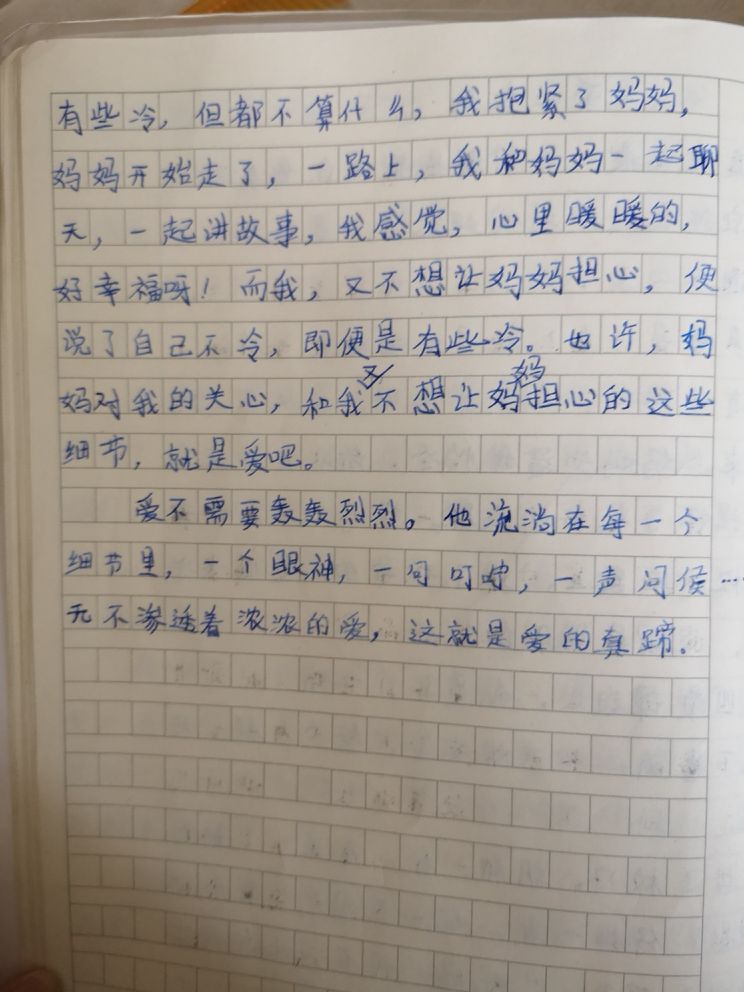 有些冷，但都不算什么，我抱紧了妈妈，
妈妈开始走了，一路上，我和妈妈一起聊
天，一起讲故事，我感觉，心里暖暖的，
好幸福呀！而我，又不想让妈妈担心，便
说了自己不冷，即便是有些冷。也许，妈
妈对我的关心，和我又不想让妈妈担心的这些
细节，就是爱吧。
爱不需要轰轰烈烈。他流淌在每一个
细节里，一个眼神，一句叮咛，一声问候…
无不渗透着浓浓的爱，这就是爱的真蹄.